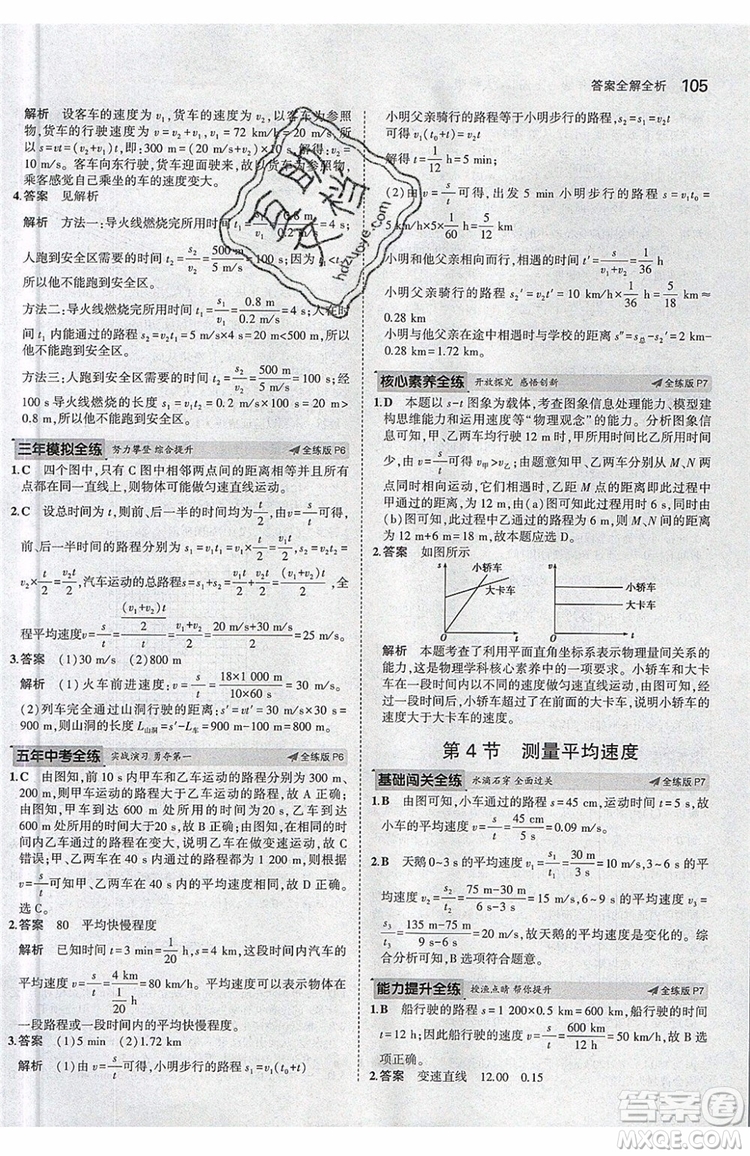 答案全解全析 105
解析 设客车的速度为v₁,货车的速度为v₂,以客车为参照
物,货车的行驶速度为v=v₁+v₂=72 km/h=20 m/s,
所以s=vt=(v₁+v₂)t=20 m/s×10 s=200 m,解得:v₂=
10 m/s。客车向东行驶,货车迎面驶来,以货车为参照物,
乘客感觉自己乘坐的车的速度变大。
4.答案 见解析
解析 方法一:导火线燃烧完所用时间t₁=s₁/v₁=0.8 m/0.2 m/s=4 s;
人跑到安全区需要的时间t₂=s₂/v₂=500 m/5 m/s=100 s;因为t₁<t₂
所以他不能跑到安全区。
方法二:导火线燃烧完所用时间t₁=s₁/v₁=0.8 m/0.2 m/s=4 s;人在这
时间t₁内通过的路程s₂=v₂t₁=5 m/s×4 s=20 m<500 m,所
以他不能跑到安全区。
方法三:人跑到安全区所用时间t₂=s₂/v₂=500 m/5 m/s=100 s;
导火线燃烧的长度s₁=v₁t₂=0.2 m/s×100 s=20 m>0.8 m,
所以他不能跑到安全区。
三年模拟全练 努力攀登 综合提升 全练版P6
1.C 四个图中,只有C图中相邻两点间的距离相等并且所有
点都在同一直线上,则物体可能做匀速直线运动。
2.C 设总时间为t,前、后一半的时间均为t/2,则前一半时间
和后一半时间的路程分别为s₁=v₁×t/2=v₁t/2和s₂=
v₂×t/2=v₂t/2,汽车运动的总路程为s=s₁+s₂=(v₁+v₂)t/2,全
程平均速度为v=s/t=((v₁+v₂)t/2)/t=(v₁+v₂)/2=20 m/s+30 m/s/2=25 m/s。
3.答案 (1)30 m/s (2)800 m
解析 (1)火车前进速度:v=s/t=18×1 000 m/10×60 s=30 m/s
(2)列车完全通过山洞行驶的路程s'=vt'=30 m/s×30 s=
900 m,山洞长:L山洞=s'-L车=900 m-100 m=800 m。
五年中考全练 实战演习 勇夺第一 全练版P6
1.C 由图知,前10 min内甲车和乙车运动的路程分别为
300 m和200 m,甲车比乙车运动的路程长,故A正确;由图
知,甲、乙两车在40 min时路程相等,都为1 200 m,故D正
确;前20 min甲、乙两车运动的路程都为600 m,因此甲、
乙通过600 m处所用的时间相等,故B正确;由图知,甲车
在相同的时间内运动的路程发生变化,速度改变,故C
错误;甲、乙两车在40 min内运动的路程都为1 200 m,所以
由v=s/t可知,甲、乙两车在40 min内的平均速度相等。故
选C。
2.答案 80 平均快慢程度
解析 已知时间t=3 min=1/20 h,这段时间内汽车的平
均速度v=s/t=4 km/(1/20 h)=80 km/h。平均速度可以表示物体在
一段路程或一段时间内的平均快慢程度。
3.答案 (1)5 min (2)1.72 km
解析 (1)由v=s/t可得,小明步行的路程s₁=v₁t₁
小明父亲骑行的路程等于小明步行的路程
可得v₁t₁=v₂t
解得t=1/12 h=5 min
(2)由v=s/t可得,出发5 min小明步行的路程s₂=v₁t₂=
5 km/h×1/12 h=5/12 km
小明和他父亲相向而行,相遇的时间t'=s₂/(v₁+v₂)=1/60 h
小明父亲骑行的路程s₂'=v₂t'=17 km/h×1/60 h=17/60 km≈
0.28 km
小明与他父亲在途中相遇时与学校的距离s″=s总-s₂'=2 km-
0.28 km=1.72 km。
核心素养全练 开放探究 感悟创新 全练版P7
1.D 本题以s-t图象为载体,考查图象信息处理能力、模型建
构思维能力和运用速度等“物理观念”的能力。分析图象
可知甲、乙两车行驶12 m时,甲用的时间短,由v=s/t可得
v甲>v乙;由于甲、乙两车同时从M、N两
点同时出发相向而行,在相遇时,甲距M点的路程大于乙
距N点的路程,由(a)图可知甲行驶的路程为12 m,由
(b)图可知乙行驶的路程为6 m,则M、N间的距离为
12 m+6 m=18 m,故本题应选D。
2.答案 如图所示
s 小轿车 大卡车 O t
v 小轿车 大卡车 O t
解析 本题考查了利用平面直角坐标系表示物理量间关系的
能力,这是物理学科核心素养中的一项要求。小轿车和大卡
车在一段时间内行驶的速度不变,说明做匀速直线运动。小
轿车在一段时间后超过前方的大卡车,说明小轿车的速度大
于大卡车的速度。
第4节 测量平均速度
基础闯关全练 水滴石穿 全面过关 全练版P7
1.B 由图可知,小车运动的路程s=45 cm,时间t=5 s,故
小车的平均速度v=s/t=45 cm/5 s=0.09 m/s。
2.B 天鹅0~3 s的平均速度v₁=s₁/t₁=30 m/3 s=10 m/s,3~6 s的
平均速度v₂=s₂/t₂=75 m-30 m/6 s-3 s=15 m/s,6~9 s的平均速度v₃=
s₃/t₃=135 m-75 m/9 s-6 s=20 m/s,故天鹅的平均速度在增加。
综合分析可知,B选项符合题意。
能力提升全练 拨浪点睛 帮你提升 全练版P7
1.B 船行驶的路程s=1 200 km-600 km=600 km,船行驶的时间
t=12 h,船行驶的平均速度v=s/t=600 km/12 h=50 km/h,B选
项正确。
2.答案 变速直线 12.00 0.15
百助文档
hdzuoye.com
答案圈
MXQE.COM